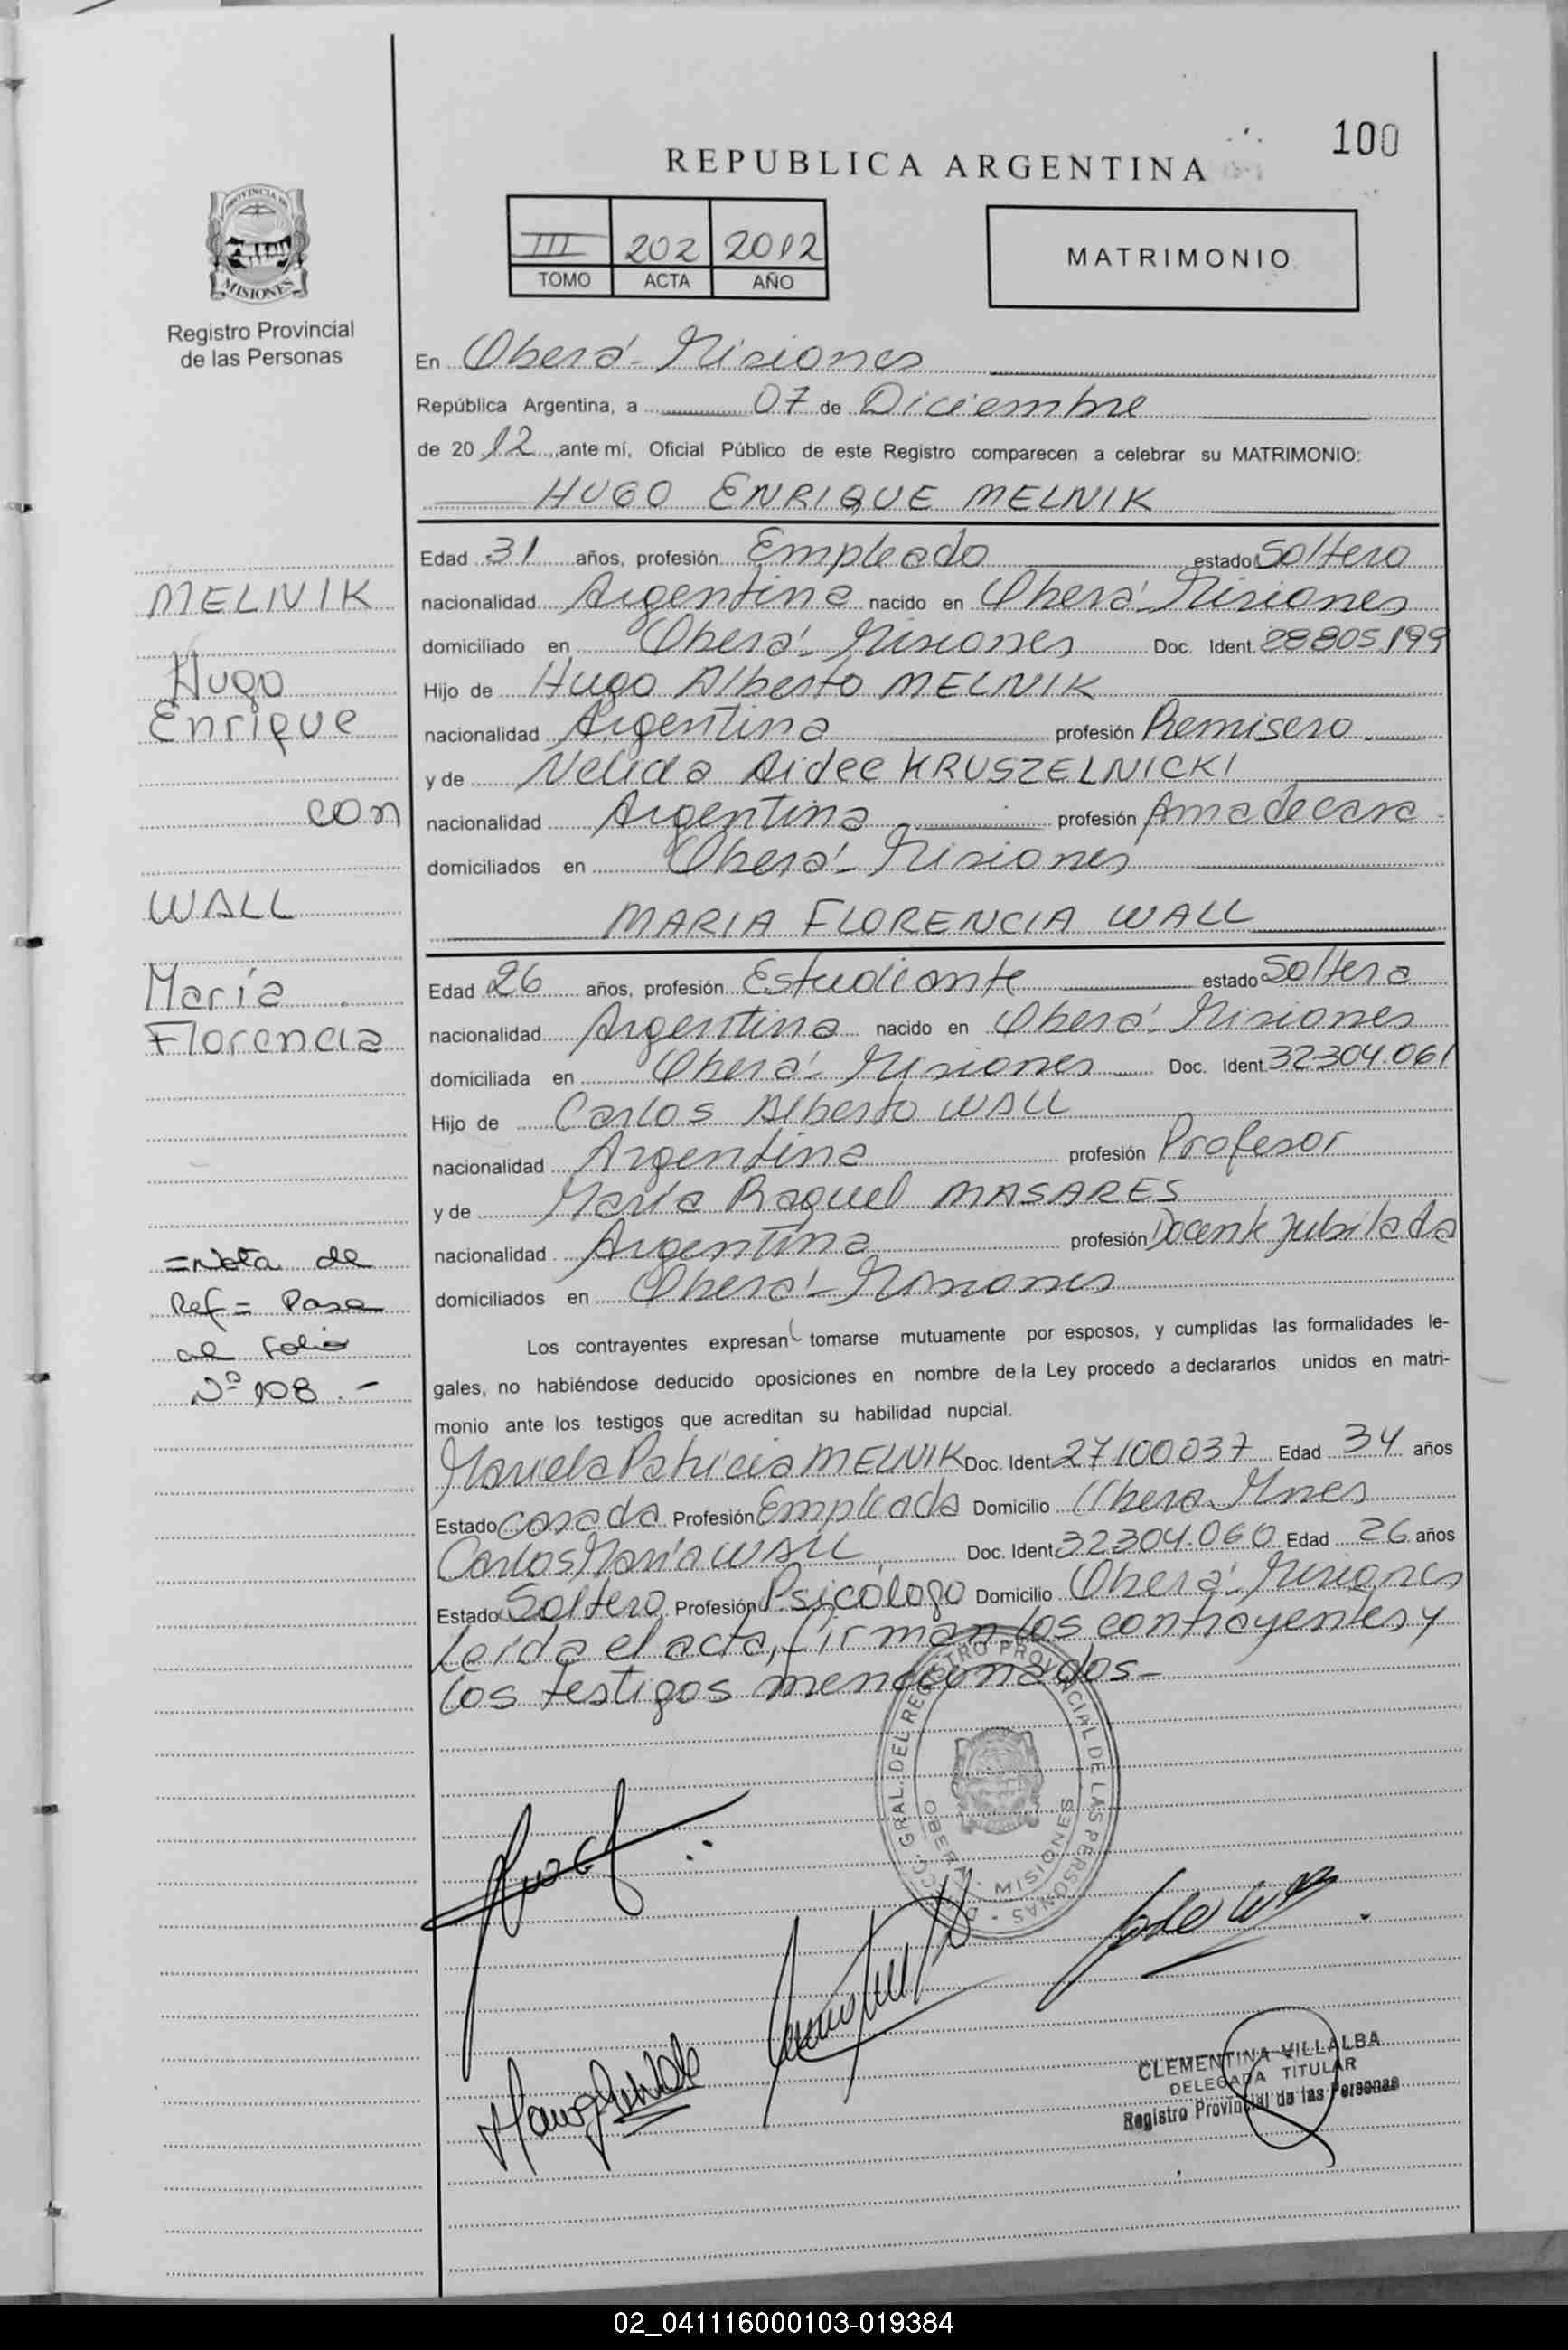 100
REPUBLICA ARGENTINA
PROVINCIA DE
MISIONES
Registro Provincial
de las Personas
III 202 2012
TOMO ACTA AÑO
MATRIMONIO
En Oberá - Misiones
República Argentina, a 07 de Diciembre
de 20 12, ante mí, Oficial Público de este Registro comparecen a celebrar su MATRIMONIO:
HUGO ENRIQUE MELNIK
Edad 31 años, profesión Empleado estado Soltero
nacionalidad Argentina nacido en Oberá - Misiones
domiciliado en Oberá - Misiones Doc. Ident. 28805.199
Hijo de Hugo Alberto MELNIK
nacionalidad Argentina profesión Remisero
y de Nelida Aidee KRUSZELNICKI
nacionalidad Argentina profesión Ama de casa
domiciliados en Oberá - Misiones
MARIA FLORENCIA WALL
Edad 26 años, profesión Estudiante estado Soltera
nacionalidad Argentina nacido en Oberá - Misiones
domiciliada en Oberá - Misiones Doc. Ident. 32304.061
Hijo de Carlos Alberto WALL
nacionalidad Argentina profesión Profesor
y de María Raquel MASARES
nacionalidad Argentina profesión Docente jubilada
domiciliados en Oberá - Misiones
Los contrayentes expresan tomarse mutuamente por esposos, y cumplidas las formalidades le-
gales, no habiéndose deducido oposiciones en nombre de la Ley procedo a declararlos unidos en matri-
monio ante los testigos que acreditan su habilidad nupcial.
Mariela Patricia MELNIK Doc. Ident. 27100037 Edad 34 años
Estado casada Profesión Empleada Domicilio Oberá Mnes
Carlos María WALL Doc. Ident. 32304.060 Edad 26 años
Estado Soltero Profesión Psicólogo Domicilio Oberá - Misiones
Leída el acta, firman los contrayentes y
los testigos mencionados -
MELNIK
Hugo
Enrique
con
WALL
María
Florencia
= Nota de
Ref = Pasa
al Folio
Nº 108 . -
GRAL. DEL REGISTRO PROVINCIAL DE LAS PERSONAS
OBERA - MISIONES
CLEMENTINA VILLALBA
DELEGADA TITULAR
Registro Provincial de las Personas
02_041116000103-019384